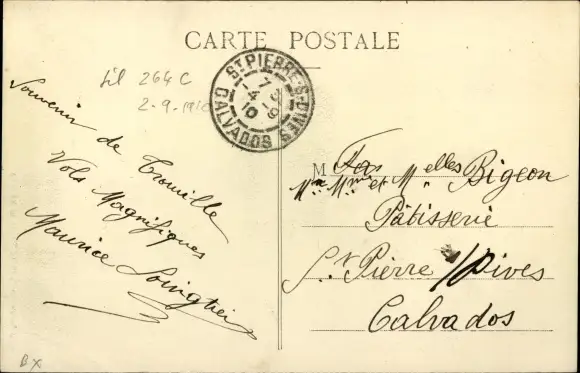 CARTE POSTALE
Lil 264 C
2-9-1910
ST PIERRE-S-DIVES
7
4-9
10
CALVADOS
Souvenir de Trouville
Vols Magnifiques
Maurice
M
Mr Mme et Melles Bigeon
Pâtisserie
St Pierre s/Dives
Calvados
BX